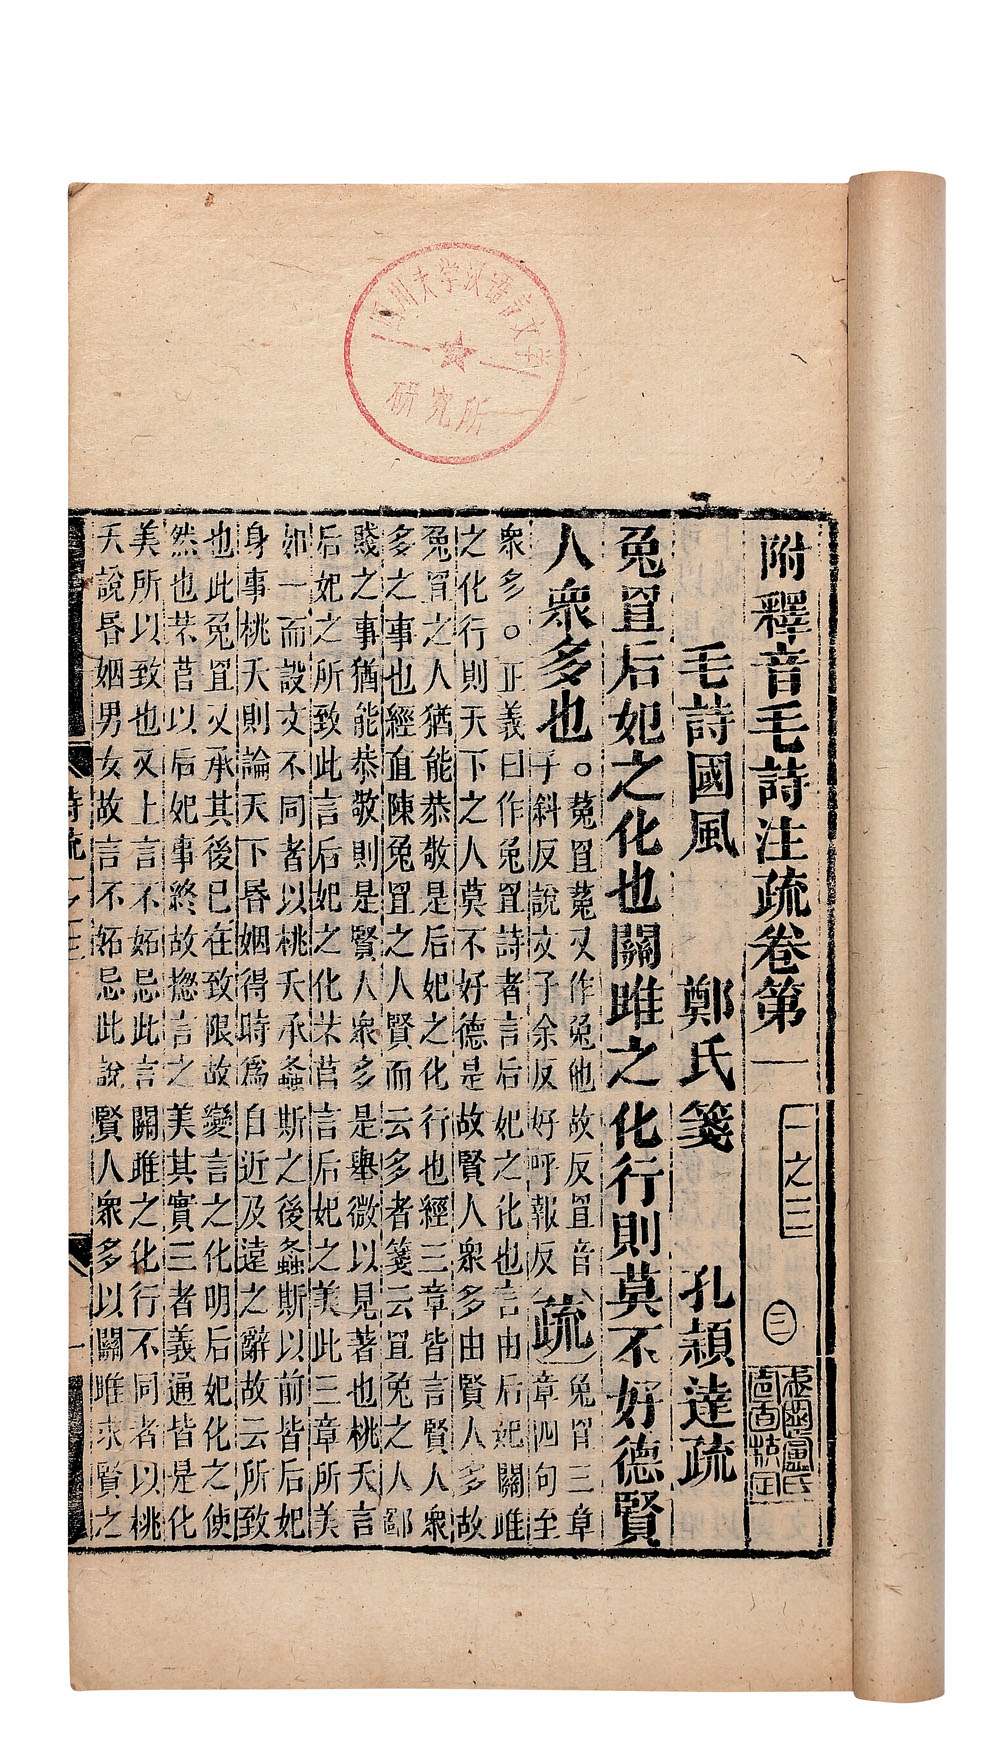 四川大学汉语言文学
研究所
附釋音毛詩注疏卷第一 一之三 三
毛詩國風 鄭氏箋 孔穎達疏
兔罝后妃之化也關雎之化行則莫不好德賢
人衆多也
。菟罝菟又作兔他故反罝音
子斜反說文子余反好呼報反
疏
兔罝三章
章四句至
衆多。正義曰作兔罝詩者言后妃之化也言由后妃關雎
之化行則天下之人莫不好德是故賢人衆多由賢人多故
兔罝之人猶能恭敬是后妃之化行也經三章皆言賢人衆
多之事也經直陳兔罝之人賢而云多者箋云罝兔之人鄙
賤之事猶能恭敬則是賢人衆多是舉微以見著也桃夭言
后妃之所致此言后妃之化芣苢言后妃之美此三章所美
如一而設文不同者以桃夭承螽斯之後螽斯以前皆后妃
身事桃夭則論天下昏姻得時爲自近及遠之辭故云所致
也此兔罝又承其後已在致限故變言之化明后妃化之使
然也芣苢以后妃事終故摠言之美其實三者義通皆是化
美所以致也又上言不妬忌此言關雎之化行不同者以桃
夭說昏姻男女故言不妬忌此說賢人衆多以關雎求賢之
詩疏一之三
一